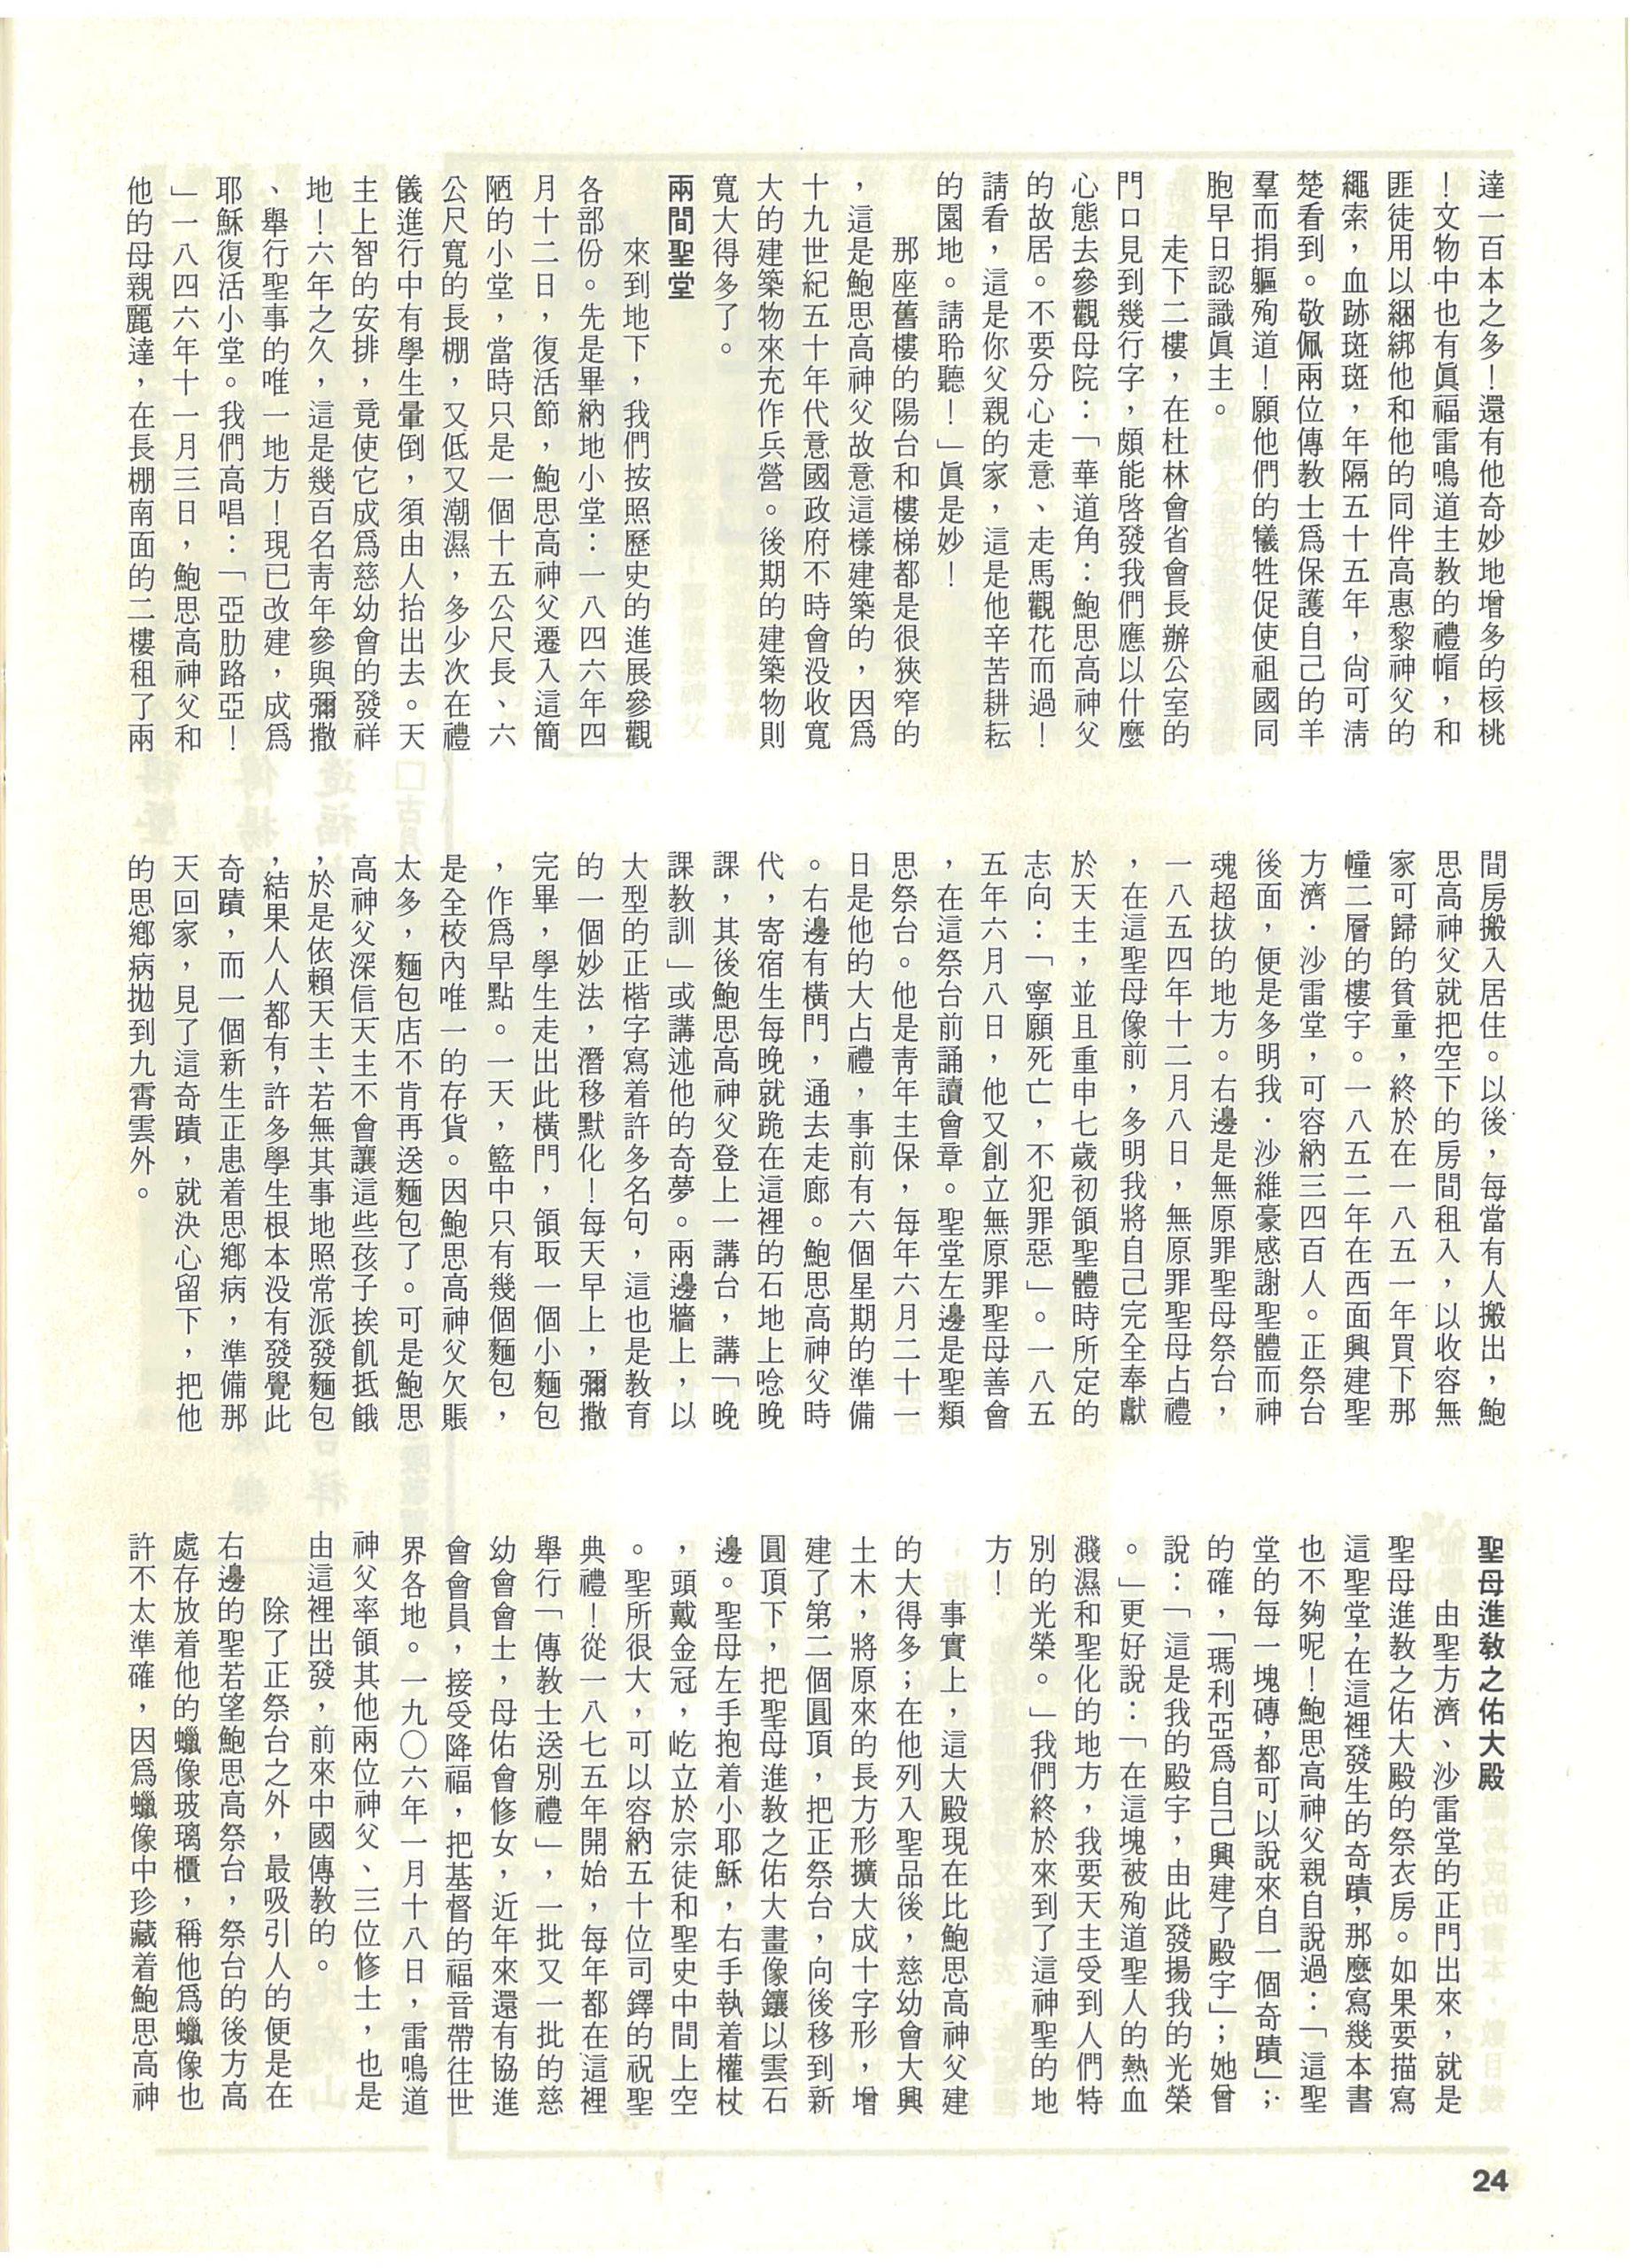 達一百本之多！還有他奇妙地增多的核桃
！文物中也有眞福雷鳴道主教的禮帽，和
匪徒用以綑綁他和他的同伴高惠黎神父的
繩索，血跡斑斑，年隔五十五年，尙可淸
楚看到。敬佩兩位傳教士爲保護自己的羊
羣而捐軀殉道！願他們的犧牲促使祖國同
胞早日認識眞主。
走下二樓，在杜林會省會長辦公室的
門口見到幾行字，頗能啓發我們應以什麼
心態去參觀母院：「華道角：鮑思高神父
的故居。不要分心走意、走馬觀花而過！
請看，這是你父親的家，這是他辛苦耕耘
的園地。請聆聽！」眞是妙！
那座舊樓的陽台和樓梯都是很狹窄的
，這是鮑思高神父故意這樣建築的，因爲
十九世紀五十年代意國政府不時會没收寬
大的建築物來充作兵營。後期的建築物則
寬大得多了。
兩間聖堂
來到地下，我們按照歷史的進展參觀
各部份。先是畢納地小堂：一八四六年四
月十二日，復活節，鮑思高神父遷入這簡
陋的小堂，當時只是一個十五公尺長、六
公尺寬的長棚，又低又潮濕，多少次在禮
儀進行中有學生暈倒，須由人抬出去。天
主上智的安排，竟使它成爲慈幼會的發祥
地！六年之久，這是幾百名靑年參與彌撒
、舉行聖事的唯一地方！現已改建，成爲
耶穌復活小堂。我們高唱：「亞肋路亞！
」一八四六年十一月三日，鮑思高神父和
他的母親麗達，在長棚南面的二樓租了兩
間房搬入居住。以後，每當有人搬出，鮑
思高神父就把空下的房間租入，以收容無
家可歸的貧童，終於在一八五一年買下那
幢二層的樓宇。一八五二年在西面興建聖
方濟．沙雷堂，可容納三四百人。正祭台
後面，便是多明我．沙維豪感謝聖體而神
魂超拔的地方。右邊是無原罪聖母祭台，
一八五四年十二月八日，無原罪聖母占禮
，在這聖母像前，多明我將自己完全奉獻
於天主，並且重申七歲初領聖體時所定的
志向：「寧願死亡，不犯罪惡」。一八五
五年六月八日，他又創立無原罪聖母善會
，在這祭台前誦讀會章。聖堂左邊是聖類
思祭台。他是靑年主保，每年六月二十一
日是他的大占禮，事前有六個星期的準備
。右邊有橫門，通去走廊。鮑思高神父時
代，寄宿生每晚就跪在這裡的石地上唸晚
課，其後鮑思高神父登上一講台，講「晚
課教訓」或講述他的奇夢。兩邊牆上，以
大型的正楷字寫着許多名句，這也是教育
的一個妙法，潛移默化！每天早上，彌撒
完畢，學生走出此橫門，領取一個小麵包
，作爲早點。一天，籃中只有幾個麵包，
是全校內唯一的存貨。因鮑思高神父欠賬
太多，麵包店不肯再送麵包了。可是鮑思
高神父深信天主不會讓這些孩子挨飢抵餓
，於是依賴天主、若無其事地照常派發麵包
，結果人人都有，許多學生根本没有發覺此
奇蹟，而一個新生正患着思鄉病，準備那
天回家，見了這奇蹟，就決心留下，把他
的思鄉病拋到九霄雲外。
聖母進教之佑大殿
由聖方濟、沙雷堂的正門出來，就是
聖母進教之佑大殿的祭衣房。如果要描寫
這聖堂，在這裡發生的奇蹟，那麼寫幾本書
也不夠呢！鮑思高神父親自說過：「這聖
堂的每一塊磚，都可以說來自一個奇蹟」；
的確，「瑪利亞爲自己興建了殿宇」；她曾
說：「這是我的殿宇，由此發揚我的光榮
。」更好說：「在這塊被殉道聖人的熱血
濺濕和聖化的地方，我要天主受到人們特
別的光榮。」我們終於來到了這神聖的地
方！
事實上，這大殿現在比鮑思高神父建
的大得多；在他列入聖品後，慈幼會大興
土木，將原來的長方形擴大成十字形，增
建了第二個圓頂，把正祭台，向後移到新
圓頂下，把聖母進教之佑大畫像鑲以雲石
邊。聖母左手抱着小耶穌，右手執着權杖
，頭戴金冠，屹立於宗徒和聖史中間上空
。聖所很大，可以容納五十位司鐸的祝聖
典禮！從一八七五年開始，每年都在這裡
舉行「傳教士送別禮」，一批又一批的慈
幼會會士，母佑會修女，近年來還有協進
會會員，接受降福，把基督的福音帶往世
界各地。一九〇六年一月十八日，雷鳴道
神父率領其他兩位神父、三位修士，也是
由這裡出發，前來中國傳教的。
除了正祭台之外，最吸引人的便是在
右邊的聖若望鮑思高祭台，祭台的後方高
處存放着他的蠟像玻璃櫃，稱他爲蠟像也
許不太準確，因爲蠟像中珍藏着鮑思高神
24